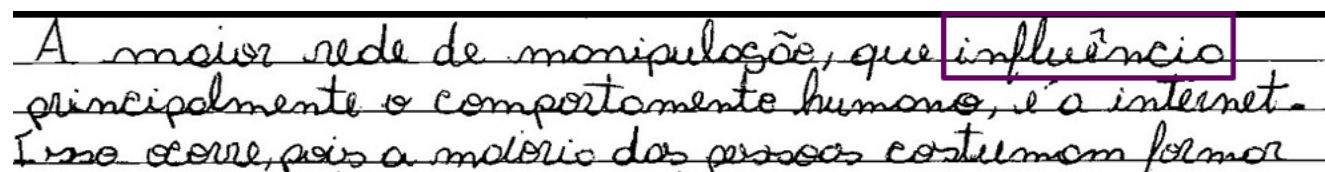 A maior rede de manipulação, que influência
principalmente o comportamento humano, é a internet.
Isso ocorre, pois a maioria das pessoas costumam formar